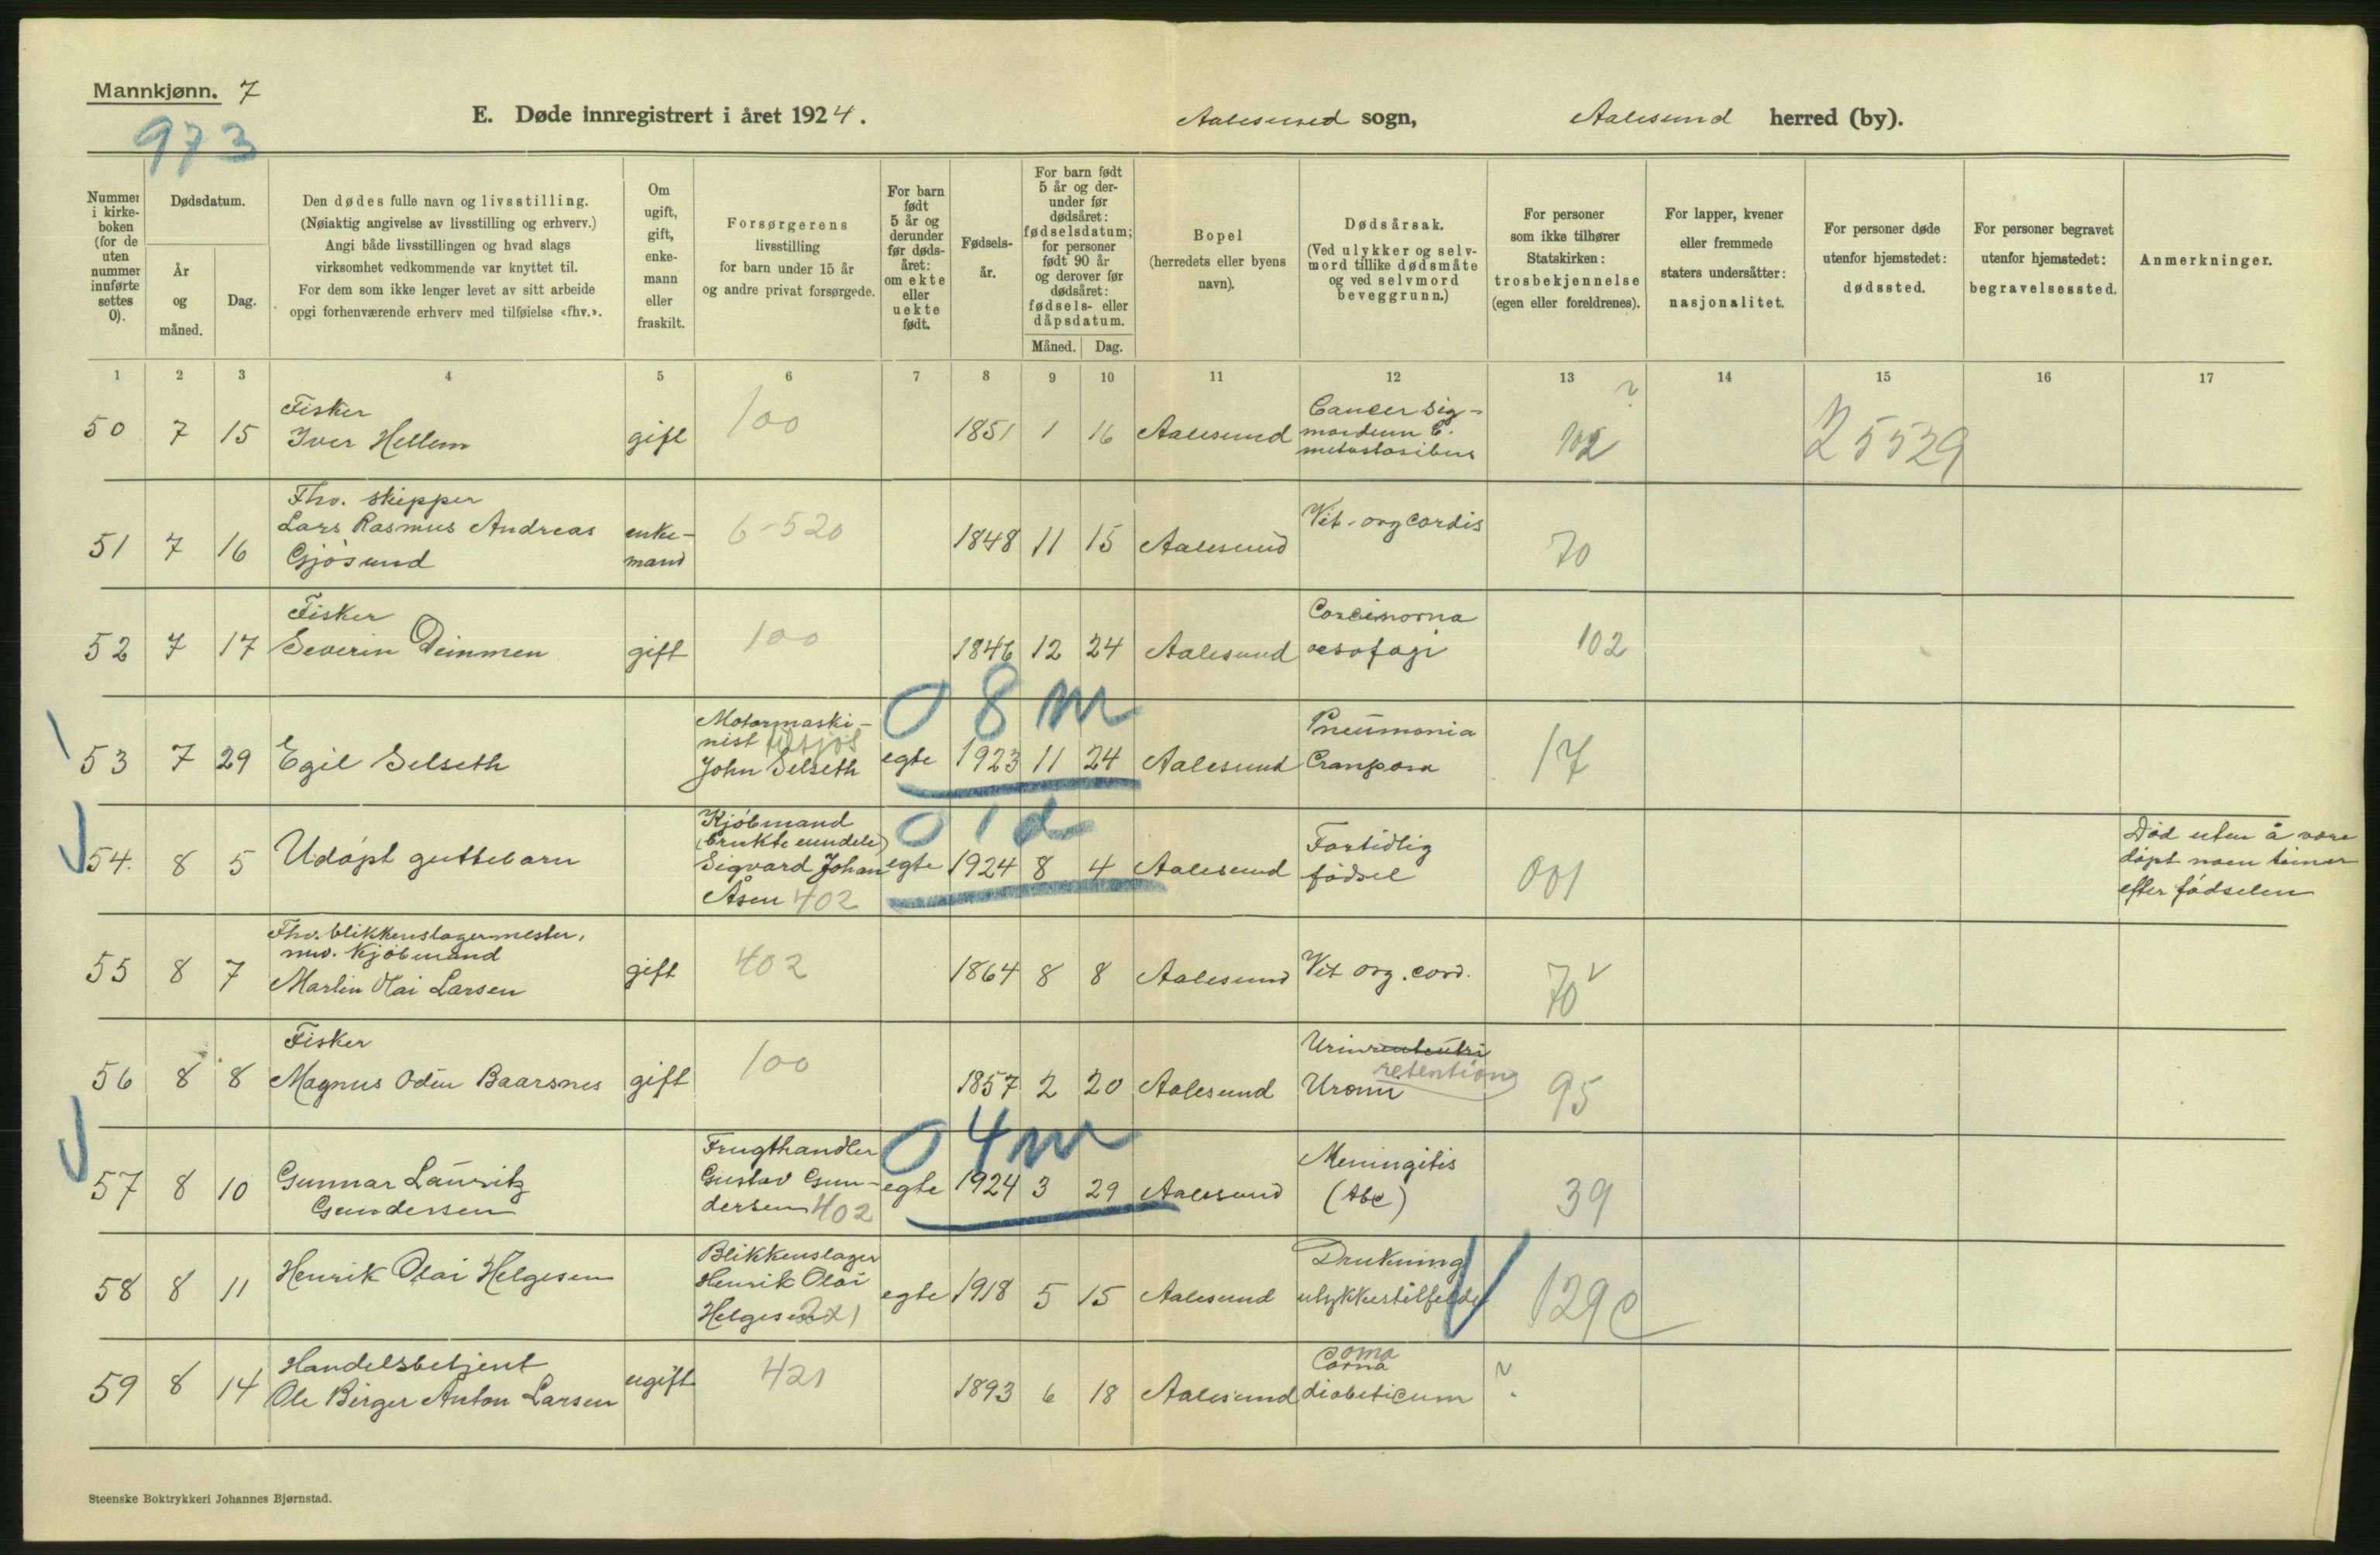 Mannkjønn. 7
973
E. Døde innregistrert i året 1924.
Aalesund sogn,
Aalesund herred (by).
Nummer i kirkeboken (for de uten nummer innførte settes 0).
Dødsdatum.
År og måned.
Dag.
Den dødes fulle navn og livsstilling.
(Nøiaktig angivelse av livsstilling og erhverv.)
Angi både livsstillingen og hvad slags
virksomhet vedkommende var knyttet til.
For dem som ikke lenger levet av sitt arbeide
opgi forhenværende erhverv med tilføielse «fhv.».
Om ugift, gift, enkemann eller fraskilt.
Forsørgerens
livsstilling
for barn under 15 år
og andre privat forsørgede.
For barn født 5 år og derunder før dødsåret: om ekte eller uekte født.
Fødselsår.
For barn født 5 år og derunder før dødsåret: fødselsdatum; for personer født 90 år og derover før dødsåret: fødsels- eller dåpsdatum.
Måned. Dag.
Bopel
(herredets eller byens
navn).
Dødsårsak.
(Ved ulykker og selvmord tillike dødsmåte og ved selvmord beveggrunn.)
For personer
som ikke tilhører
Statskirken:
trosbekjennelse
(egen eller foreldrenes).
For lapper, kvener
eller fremmede
staters undersåtter:
nasjonalitet.
For personer døde
utenfor hjemstedet:
dødssted.
For personer begravet
utenfor hjemstedet:
begravelsessted.
Anmerkninger.
1 2 3 4 5 6 7 8 9 10 11 12 13 14 15 16 17
50 7 15 Fisker
Iver Hellem gift 100 1851 1 16 Aalesund Cancer sig-
moideum c.
metastasibus 102 ? 25529
51 7 16 Fhv. skipper
Lars Rasmus Andreas
Gjøsund enke-
mand 6-520 1848 11 15 Aalesund Vit. org cordis 70
52 7 17 Fisker
Severin Deinmen gift 100 1846 12 24 Aalesund Carcinoma
oesofagi 102
0 8 m
53 7 29 Egil Selseth Motormaski-
nist
John Selseth egte 1923 11 24 Aalesund Pneumonia
Crouposa 17
0 1 d
54. 8 5 Udøpt guttebarn Kjøbmand
(brukte
Sigvard Johan
Åsen 402 egte 1924 8 4 Aalesund Fortidlig
fødsel 001 Død uten å være
døpt noen timer
efter fødselen
55 8 7 Fhv. blikkenslagermester,
nuv. Kjøbmand
Martin Olai Larsen gift 402 1864 8 8 Aalesund Vit org. cord. 70
56 8 8 Fisker
Magnus Odin Baarsnes gift 100 1857 2 20 Aalesund Urin
retention
Uremi 95
0 4 m
57 8 10 Gunnar Lauritz
Gundersen Frugthandler
Gustav Gun-
dersen 402 egte 1924 3 29 Aalesund Meningitis
(tbc) 39
58 8 11 Henrik Olai Helgesen Blikkenslager
Henrik Olai
Helgesen 221 egte 1918 5 15 Aalesund Drukning
ulykkestilfelde 129c
59 8 14 Handelsbetjent
Ole Birger Anton Larsen ugift 421 1893 6 18 Aalesund Coma
Coma
diabeticum ?
Steenske Boktrykkeri Johannes Bjørnstad.